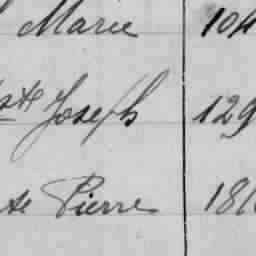 Marie 104
ste Joseph 129
te Pierre 181